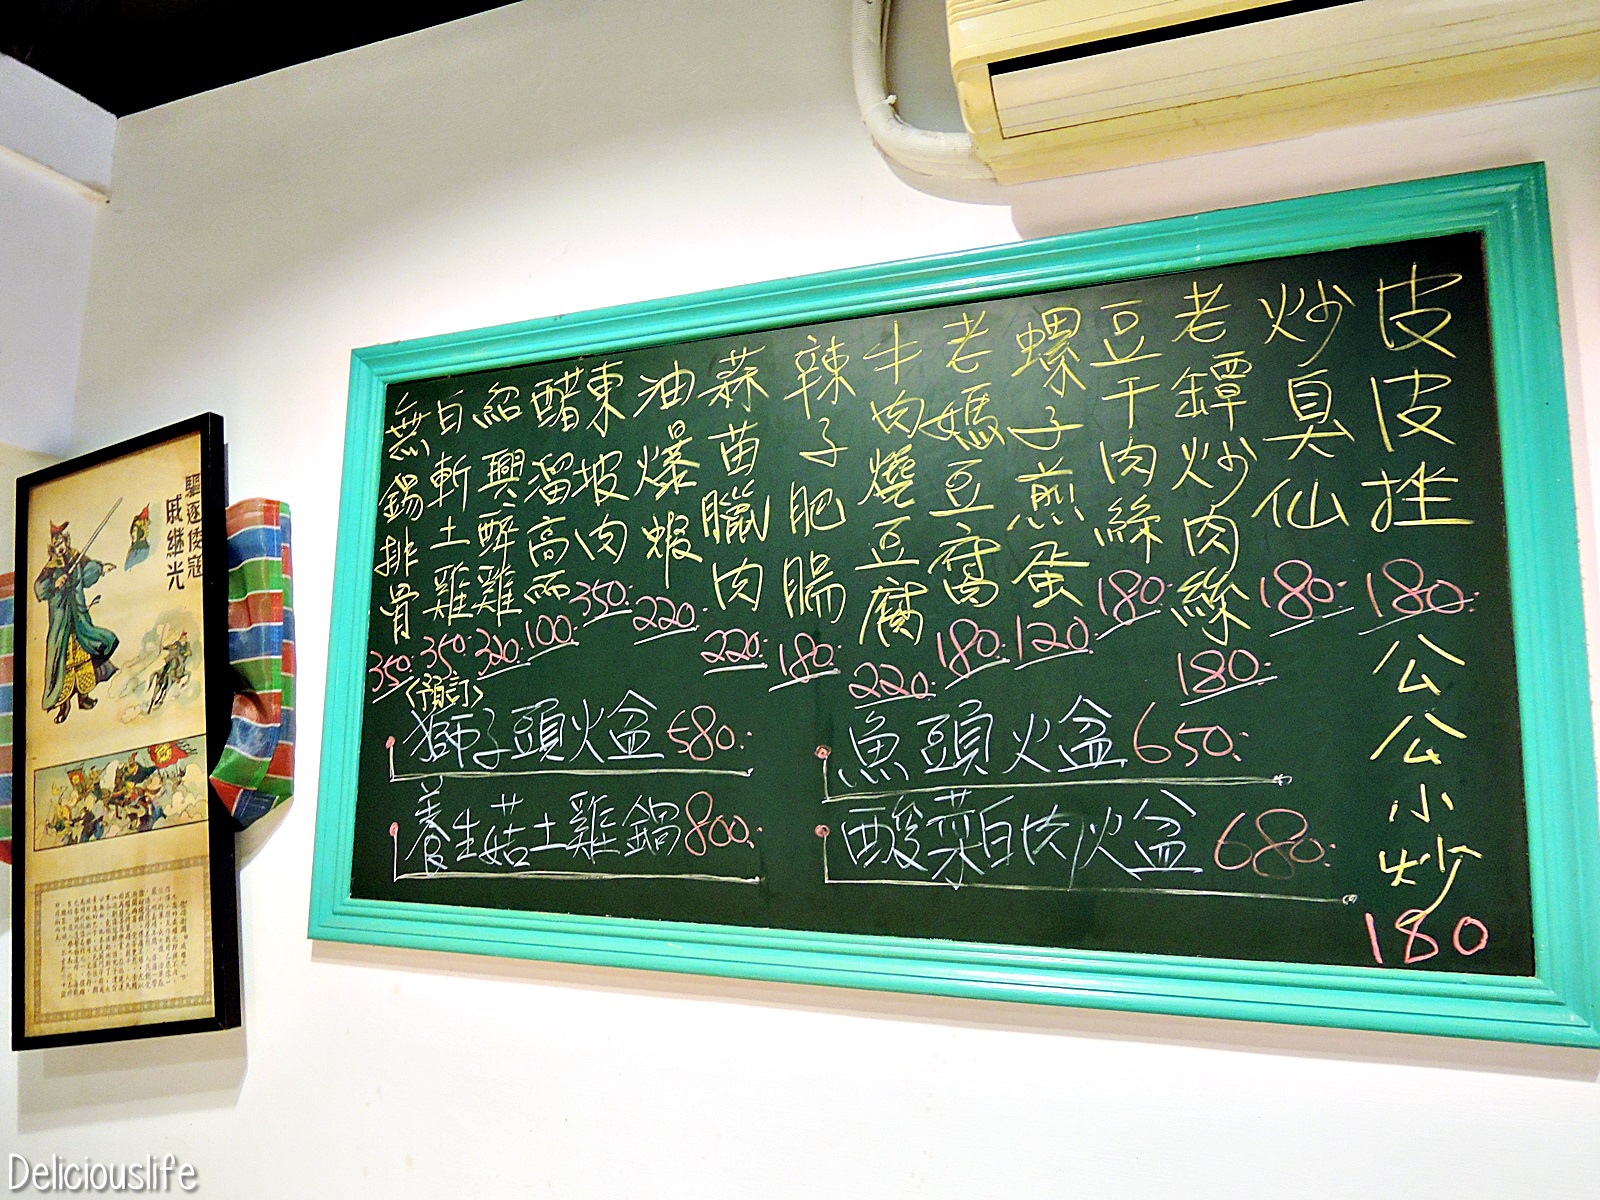 皮皮挫 180.
公公小炒 180
炒臭仙 180.
老鐔炒肉絲 180.
豆干肉絲 180.
螺子煎蛋 120.
老媽豆腐 180.
牛肉燒豆腐 220.
辣子肥腸 180.
蒜苗臘肉 220.
油爆蝦 220.
東坡肉 350.
醋溜高麗 100.
紹興醉雞 320.
白斬土雞 350.
(預訂)
無錫排骨 350.
獅子頭火盆 580.
魚頭火盆 650.
養生菇土雞鍋 800.
酸菜白肉火盆 680.
驅逐倭寇
戚繼光
Deliciouslife